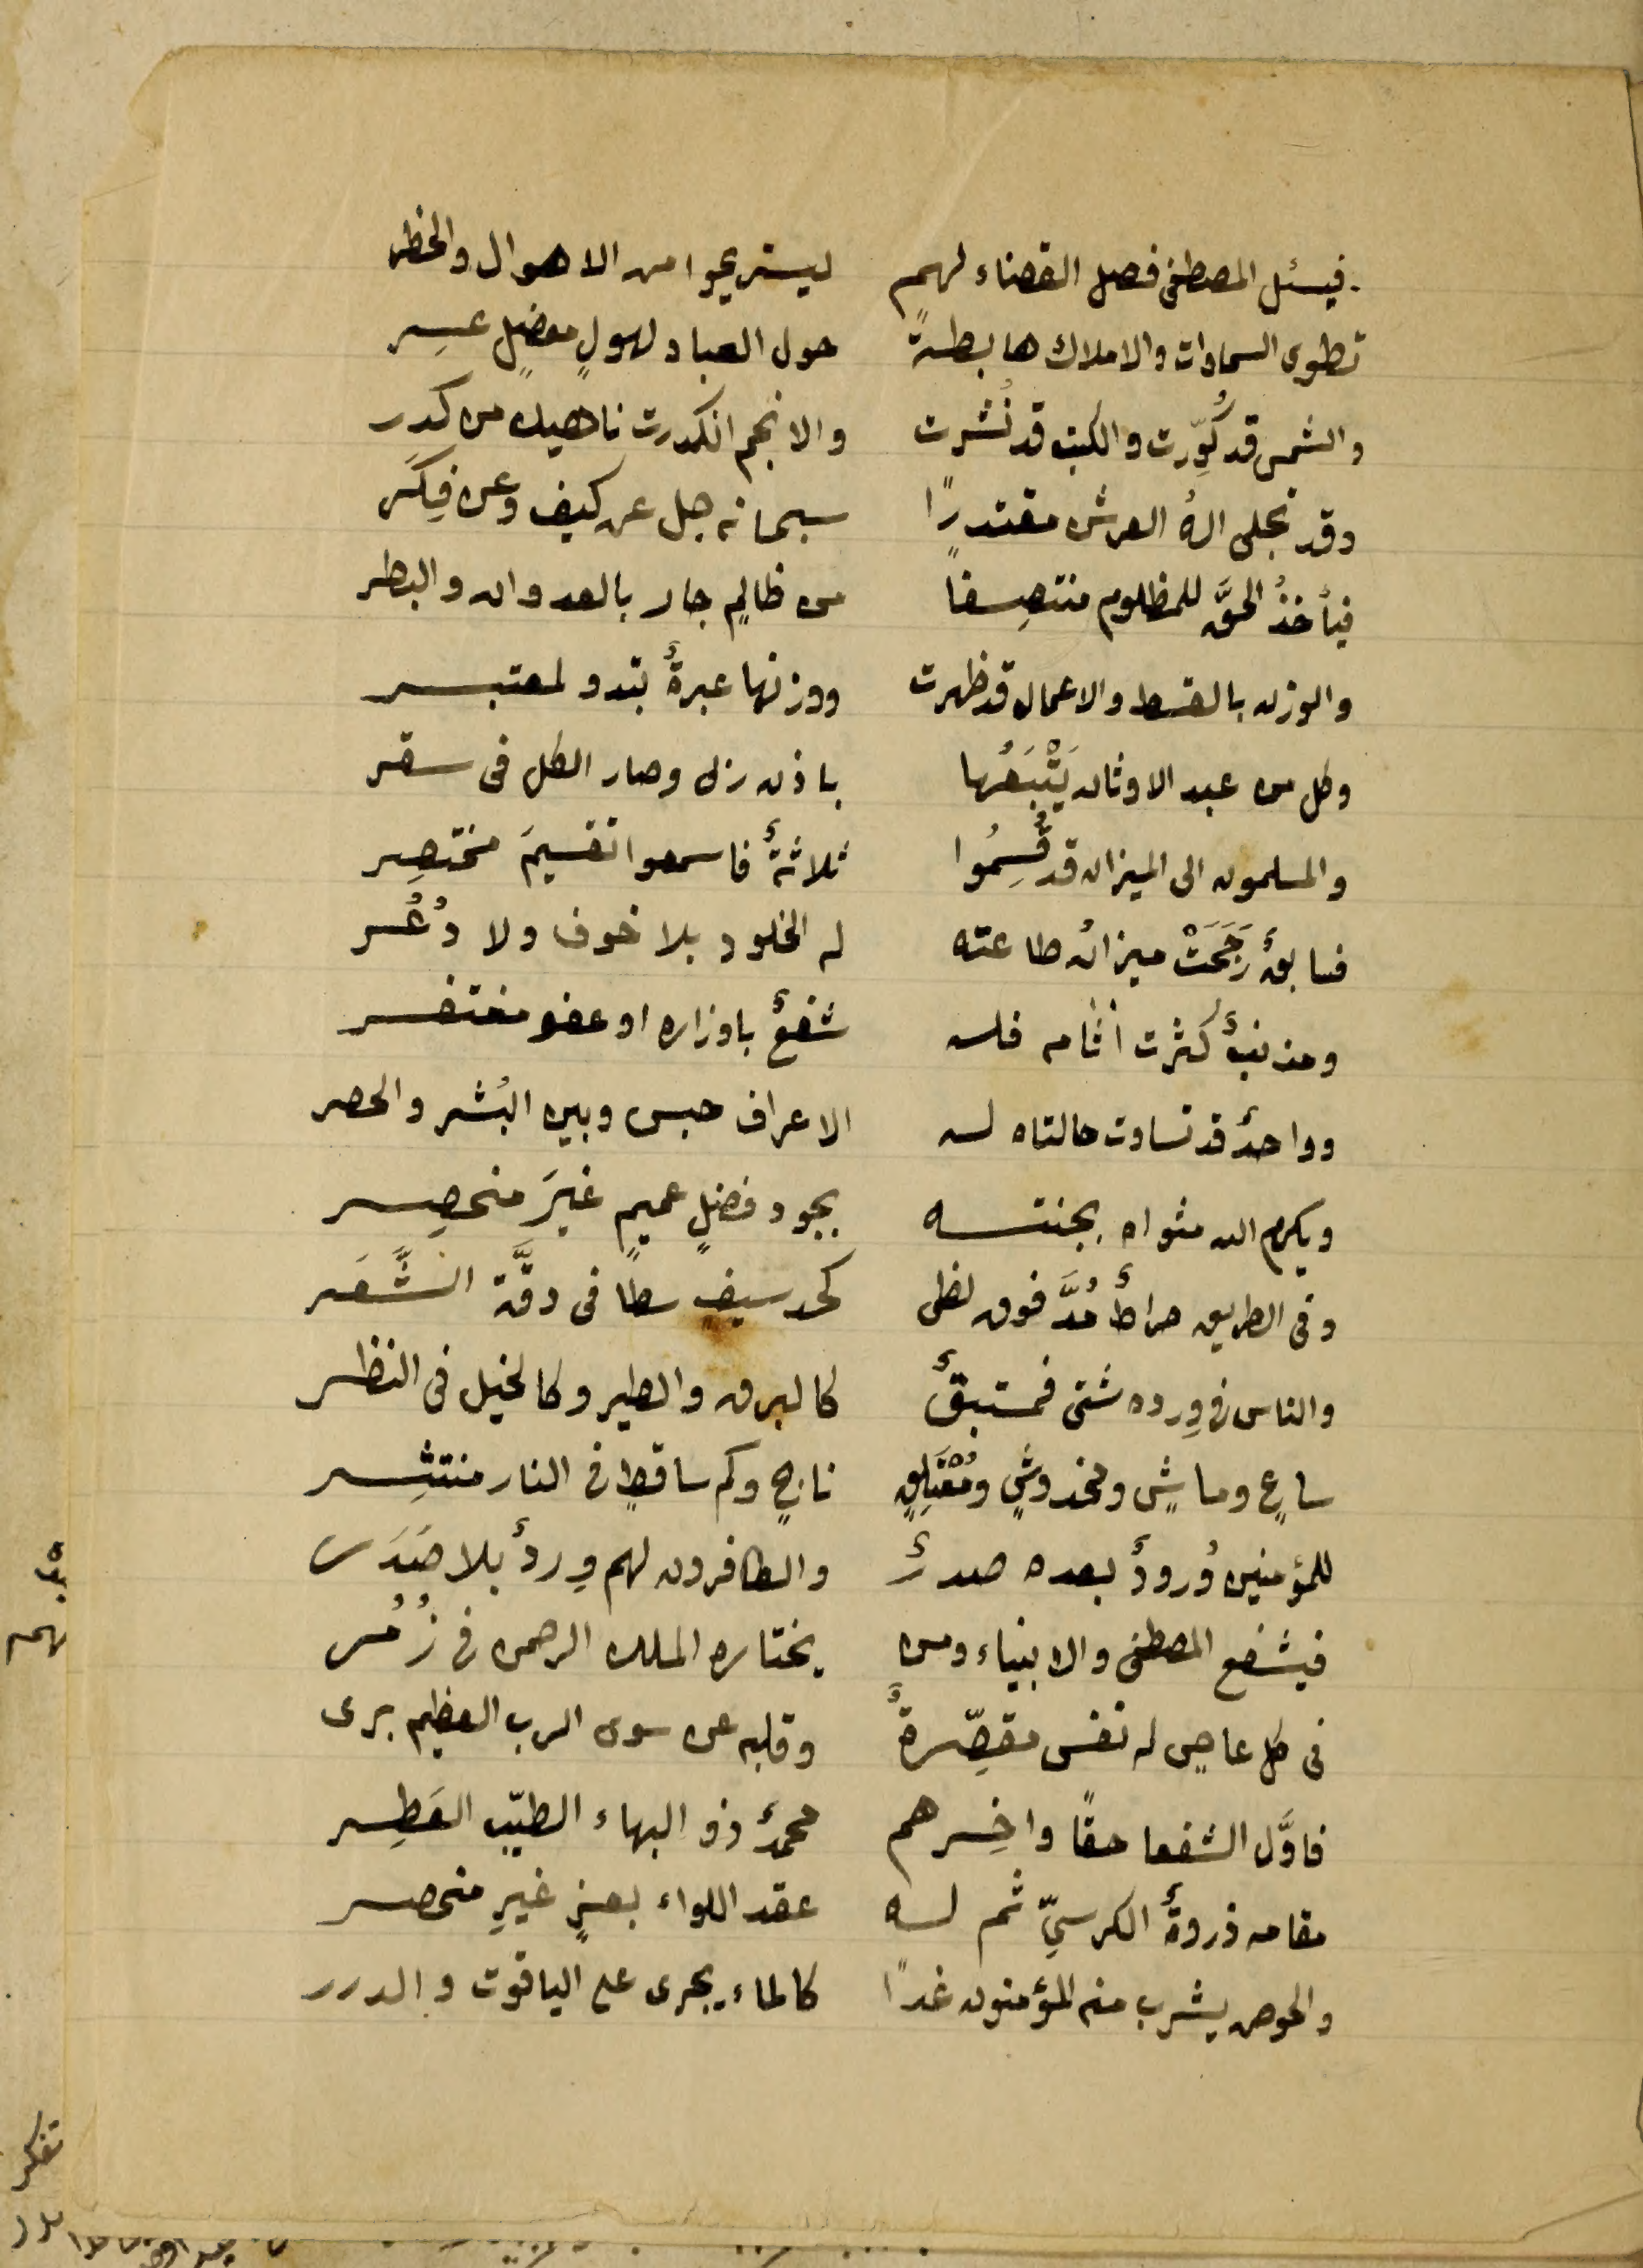 فيسئل المصطفى فصل القضاء لهم ليستريحوا من الاهوال والخطر
تطوى السماوات والاملاك هابطةً حول العباد لهولٍ معضلٍ عسِر
والشمس قد كُوِّرت والكتب قد نُشرت والانجم انكدرت ناهيك من كدَر
وقد تجلى الهُ العرش مقتدرًا سبحانه جل عن كيف وعن فِكَر
فيأخذُ الحقَّ للمظلوم منتصِفا من ظالمٍ جار بالعدوان والبطر
والوزن بالقسط والاعمال قد ظهرت ووزنها عبرةٌ تبدو لمعتبر
وكل من عبد الاوثان يَتْبَعُها باذن ربى وصار الكل فى سقر
والمسلمون الى الميزان قد قُسِمُوا ثلاثةٌ فاسمعوا تقسيمَ مختصِر
فسابقٌ رَجَحَتْ ميزانُ طاعته له الخلود بلا خوف ولا ذُعُر
ومذنبٌ كثرت آثامه فله شفعٌ باوزاره او عفو مغتفر
وواحدٌ قد تساوت حالتاه له الاعراف حبس وبين البُشر والحصر
ويكرم الله مثواه بجنته بجود فضلٍ عميمٍ غيرَ منحصِر
وفى الطريق صراطٌ مُدَّ فوق لظى كحد سيف سطا فى دقَّة الشَّعَر
والناس فى وِرده شتى فمستبقٌ كالبرق والطير وكالخيل فى النظر
ساعٍ وماشٍ ومخدوشٍ ومُعْتَلِقٍ ناجٍ وكم ساقطٍ فى النار منتثِر
للمؤمنين وُرودٌ بعده صدرٌ والكافرون لهم وِردٌ بلا صَدَر
فيشفع المصطفى والانبياء ومن يختاره الملك الرحمن فى زُمُر
فى كل عاصٍ له نفس مقصِّرةٌ وقلبه عن سوى الرب العظيم برى
فاوَّل الشفعا حقًا واخِرهم محمدٌ ذو البهاء الطيّب العَطِر
مقامه ذروةُ الكرسيِّ ثم له عقد اللواء بعزٍ غيرِ منحصر
والحوض يشرب منه المؤمنون غدًا كالماء يجرى على الياقوت والدرر